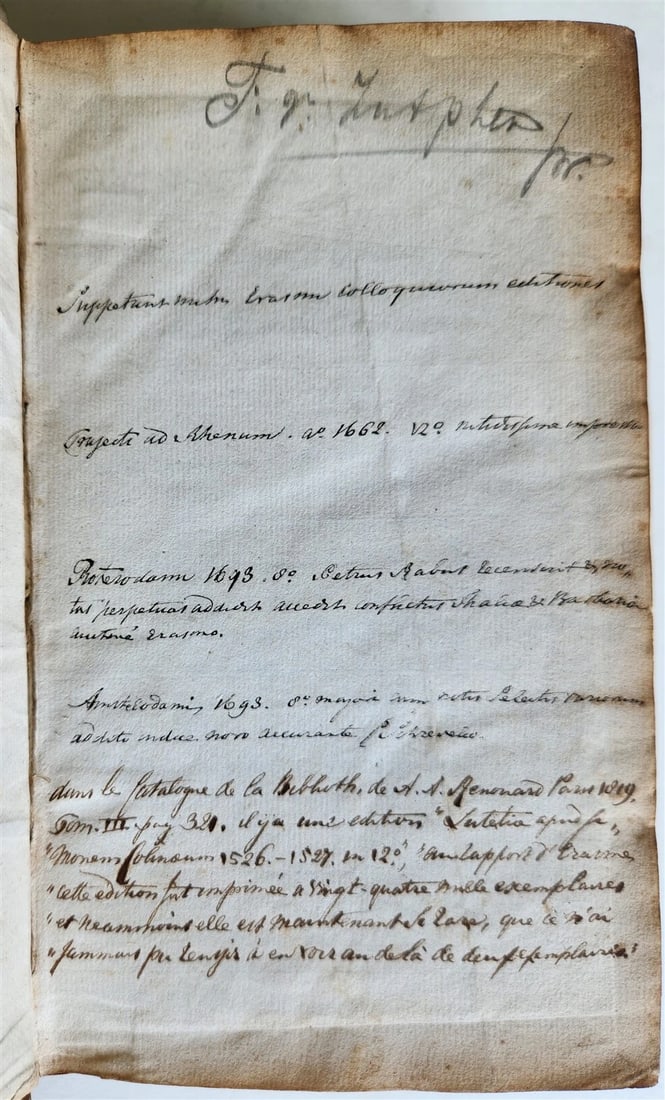 Zutphen
Suppetunt mihi Erasmi Colloquiorum editiones
Trajecti ad Rhenum. aº 1662. 12º. nitidissime impressa
Roterodami 1693. 8º Petrus Rabus recensuit & no-
tas perpetuas addidit accedit conflictus Thaliæ & Barbariei
auctore Erasmo.
Amstelodami, 1693. 8º majori cum notis selectis variorum
addito indice novo accurante Schrevelio.
dans le Catalogue de la Biblioth. de A. A. Renouard Paris 1819.
Tom. III. pag 321. il y a une edition "Lutetiæ apud Si-
"monem Colinæum 1526.-1527. in 12º," "au rapport d'Erasme
"cette edition fut imprimée a vingt-quatre mille exemplaires
"et neammoins elle est maintenant si rare, que je n'ai
"jammais pu reussir à en voir au delà de deux exemplaires"